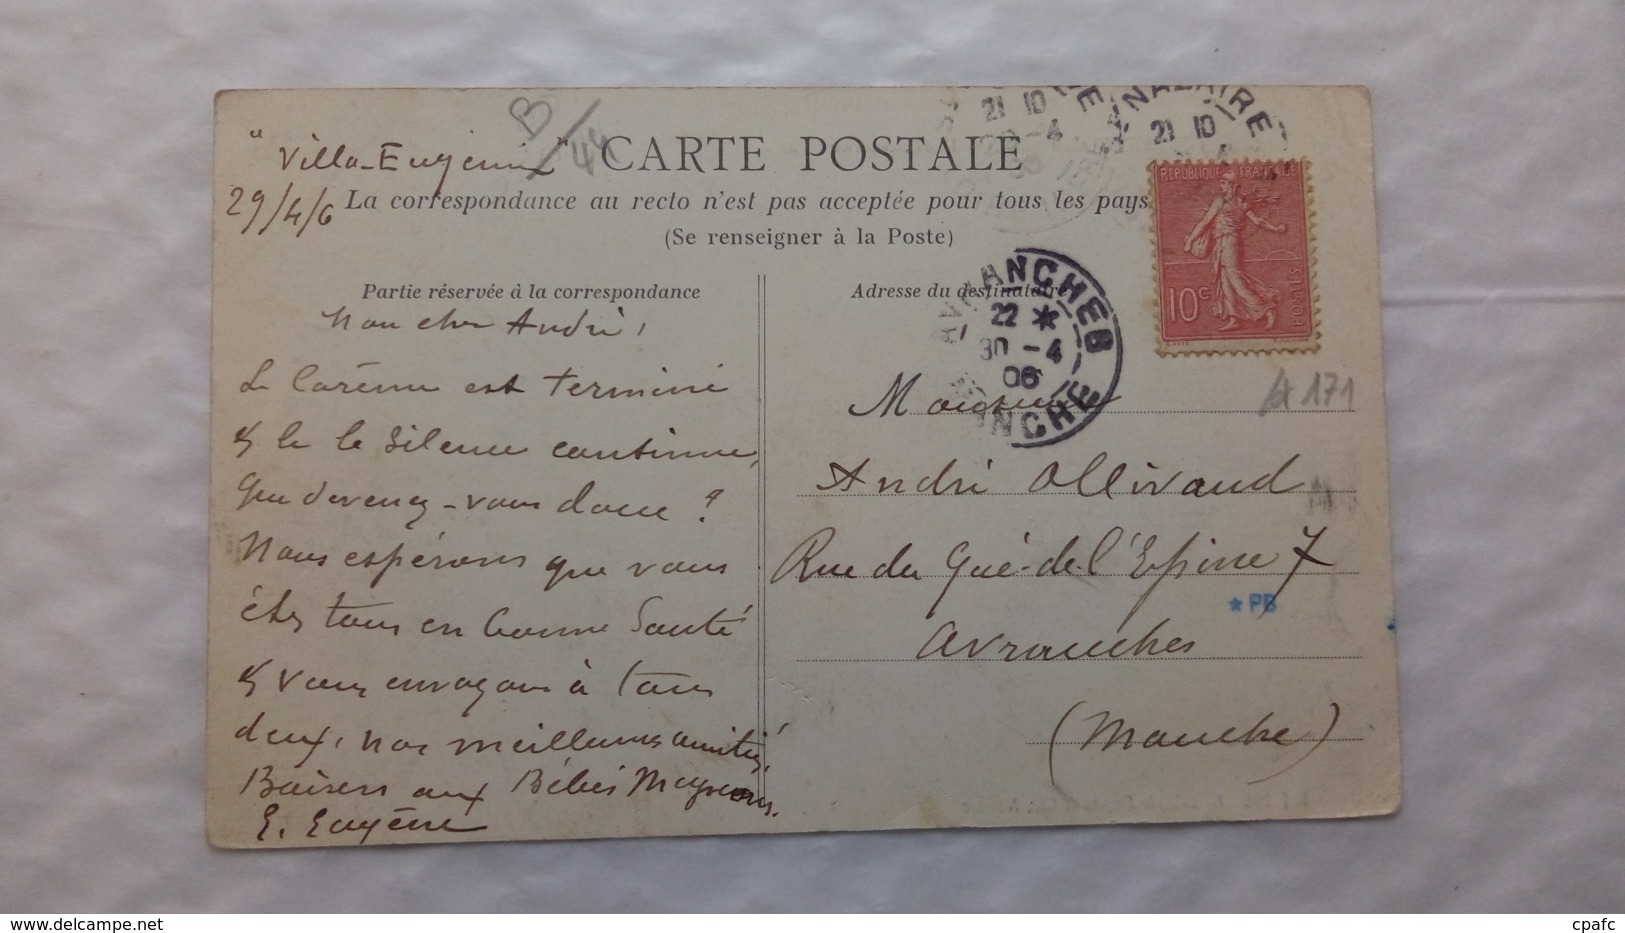 "Villa-Eugénie"
29/4/6
44
CARTE POSTALE
La correspondance au recto n'est pas acceptée pour tous les pays
(Se renseigner à la Poste)
Partie réservée à la correspondance
Mon cher André,
Le Carême est terminé
& le le silence continue,
Que devenez-vous donc ?
Nous espérons que vous
êtes tous en bonne Santé
& vous envoyons à tous
deux, nos meilleures amitiés.
Baisers aux Bébés Mignons.
E. Eugène
21 10
-4
06
NAZAIRE
21 10
REPUBLIQUE FRANÇAISE
10c
POSTES
AVRANCHES
22 *
30 -4
06
MANCHE
Adresse du destinataire
Monsieur
171
André Ollivaud
Rue du Gué-de-l'Epine 7
* PB
Avranches
(Manche)
delcampe.net
cpafc